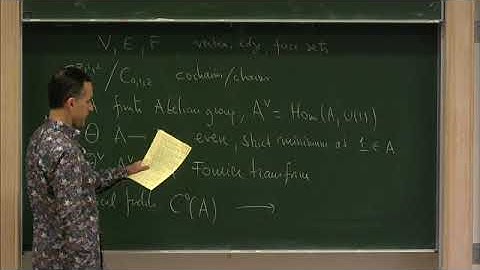 V, E, F vertex, edge, face sets
/ C₀,₁,₂ cochains/chains
finite Abelian group, A^∨ = Hom(A, U(1))
Θ A — even, strict minimum at 1 ∈ A
Fourier transform
C⁰(A) →